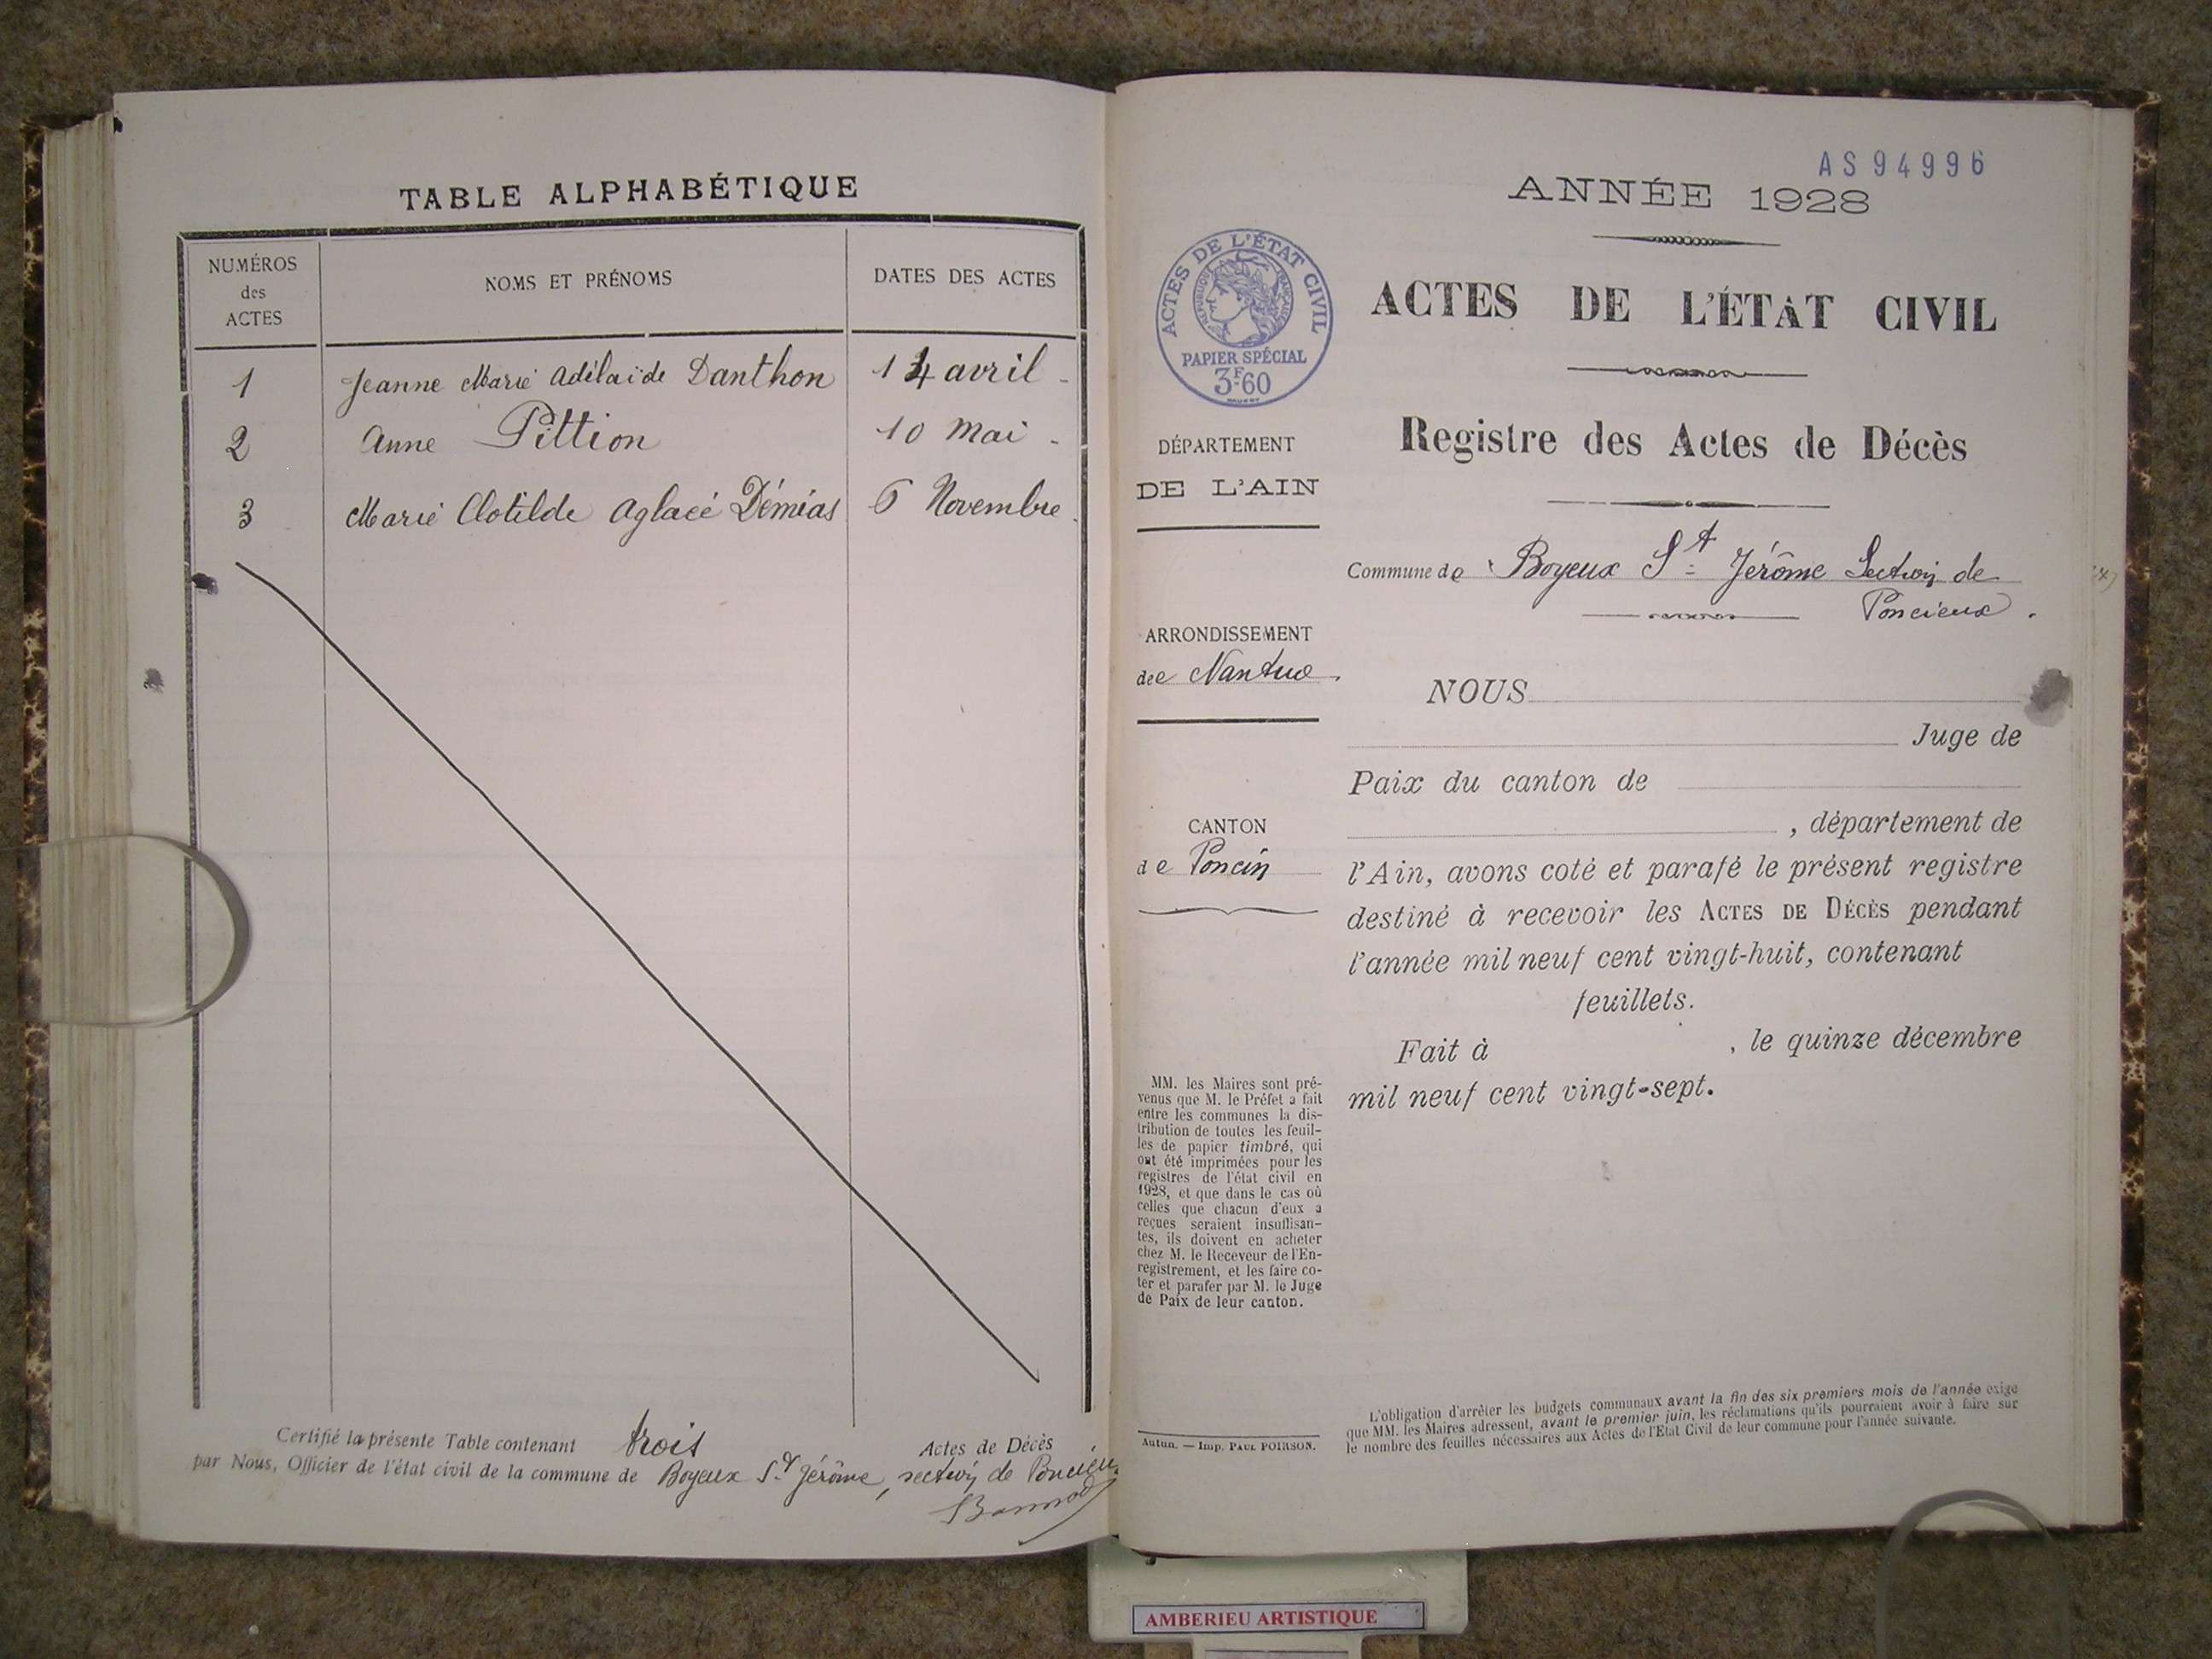 TABLE ALPHABÉTIQUE
NUMÉROS
des
ACTES
NOMS ET PRÉNOMS
DATES DES ACTES
1 Jeanne Marie Adélaïde Danthon 14 avril
2 Anne Pittion 10 Mai
3 Marie Clotilde Aglaé Démias 6 Novembre
Certifié la présente Table contenant trois Actes de Décès
par Nous, Officier de l'état civil de la commune de Boyeux St Jérôme, section de Poncieux
AS 94996
ANNÉE 1928
ACTES DE L'ÉTAT CIVIL
RÉPUBLIQUE FRANÇAISE
PAPIER SPÉCIAL
3F60
ACTES DE L'ÉTAT CIVIL
Registre des Actes de Décès
DÉPARTEMENT
DE L'AIN
Commune de Boyeux St Jérôme Section de
Poncieux.
ARRONDISSEMENT
de Nantua.
CANTON
de Poncin
NOUS
Juge de
Paix du canton de
, département de
l'Ain, avons coté et parafé le présent registre
destiné à recevoir les ACTES DE DÉCÈS pendant
l'année mil neuf cent vingt-huit, contenant
feuillets.
Fait à , le quinze décembre
mil neuf cent vingt-sept.
MM. les Maires sont pré-
venus que M. le Préfet a fait
entre les communes la dis-
tribution de toutes les feuil-
les de papier timbré, qui
ont été imprimées pour les
registres de l'état civil en
1928, et que dans le cas où
celles que chacun d'eux a
reçues seraient insuffisan-
tes, ils doivent en acheter
chez M. le Receveur de l'En-
registrement, et les faire co-
ter et parafer par M. le Juge
de Paix de leur canton.
Autun. — Imp. PAUL POIRSON.
L'obligation d'arrêter les budgets communaux avant la fin des six premiers mois de l'année exige
que MM. les Maires adressent, avant le premier juin, les réclamations qu'ils pourraient avoir à faire sur
le nombre des feuilles nécessaires aux Actes de l'Etat Civil de leur commune pour l'année suivante.
AMBERIEU ARTISTIQUE